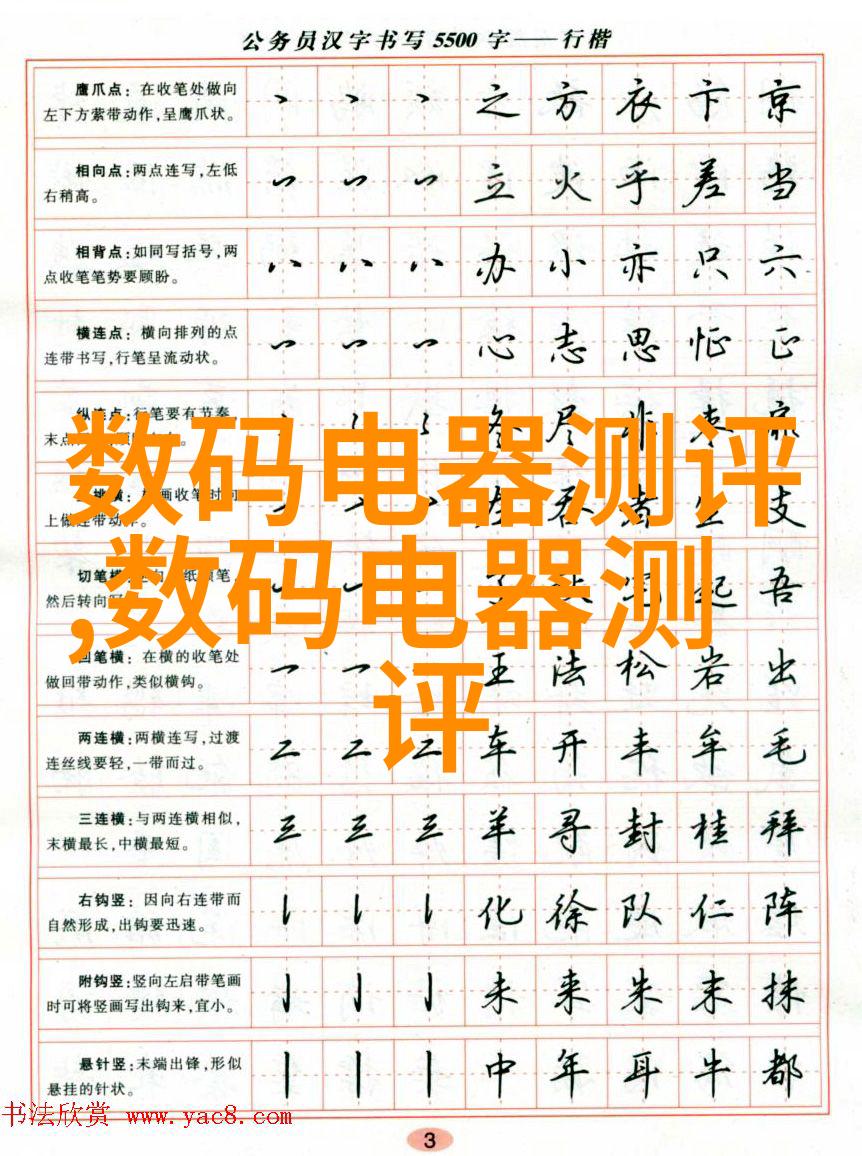 公务员汉字书写5500字——行楷
鹰爪点：在收笔处做向
左下方萦带动作，呈鹰爪状。
之 方 衣 卞 京
相向点：两点连写，左低
右稍高。
立 火 乎 差 当
相背点：如同写括号，两
点收笔笔势要顾盼。
办 小 亦 只 六
横连点：横向排列的点
连带书写，行笔呈流动状。
心 志 思 怔 正
纵连点：行笔要有节奏，
末点
冬 尽 非 枣
数码电器测评
挑横：
上做连带动作。
者 生 支
切笔横：
然后转向
起 吾
,数码电器测
回笔横：在横的收笔处
做回带动作，类似横钩。
王 法 松 岩 出
评
两连横：两横连写，过渡
连丝线要轻，一带而过。
车 开 丰 牟 毛
三连横：与两连横相似，
末横最长，中横最短。
羊 寻 封 桂 拜
右钩竖：因向右连带而
自然形成，出钩要迅速。
化 徐 队 仁 阵
附钩竖：竖向左启带笔画
时可将竖画写出钩来，宜小。
未 来 朱 末 抹
悬针竖：末端出锋，形似
悬挂的针状。
中 年 耳 牛 都
书法欣赏 www.yac8.com
3